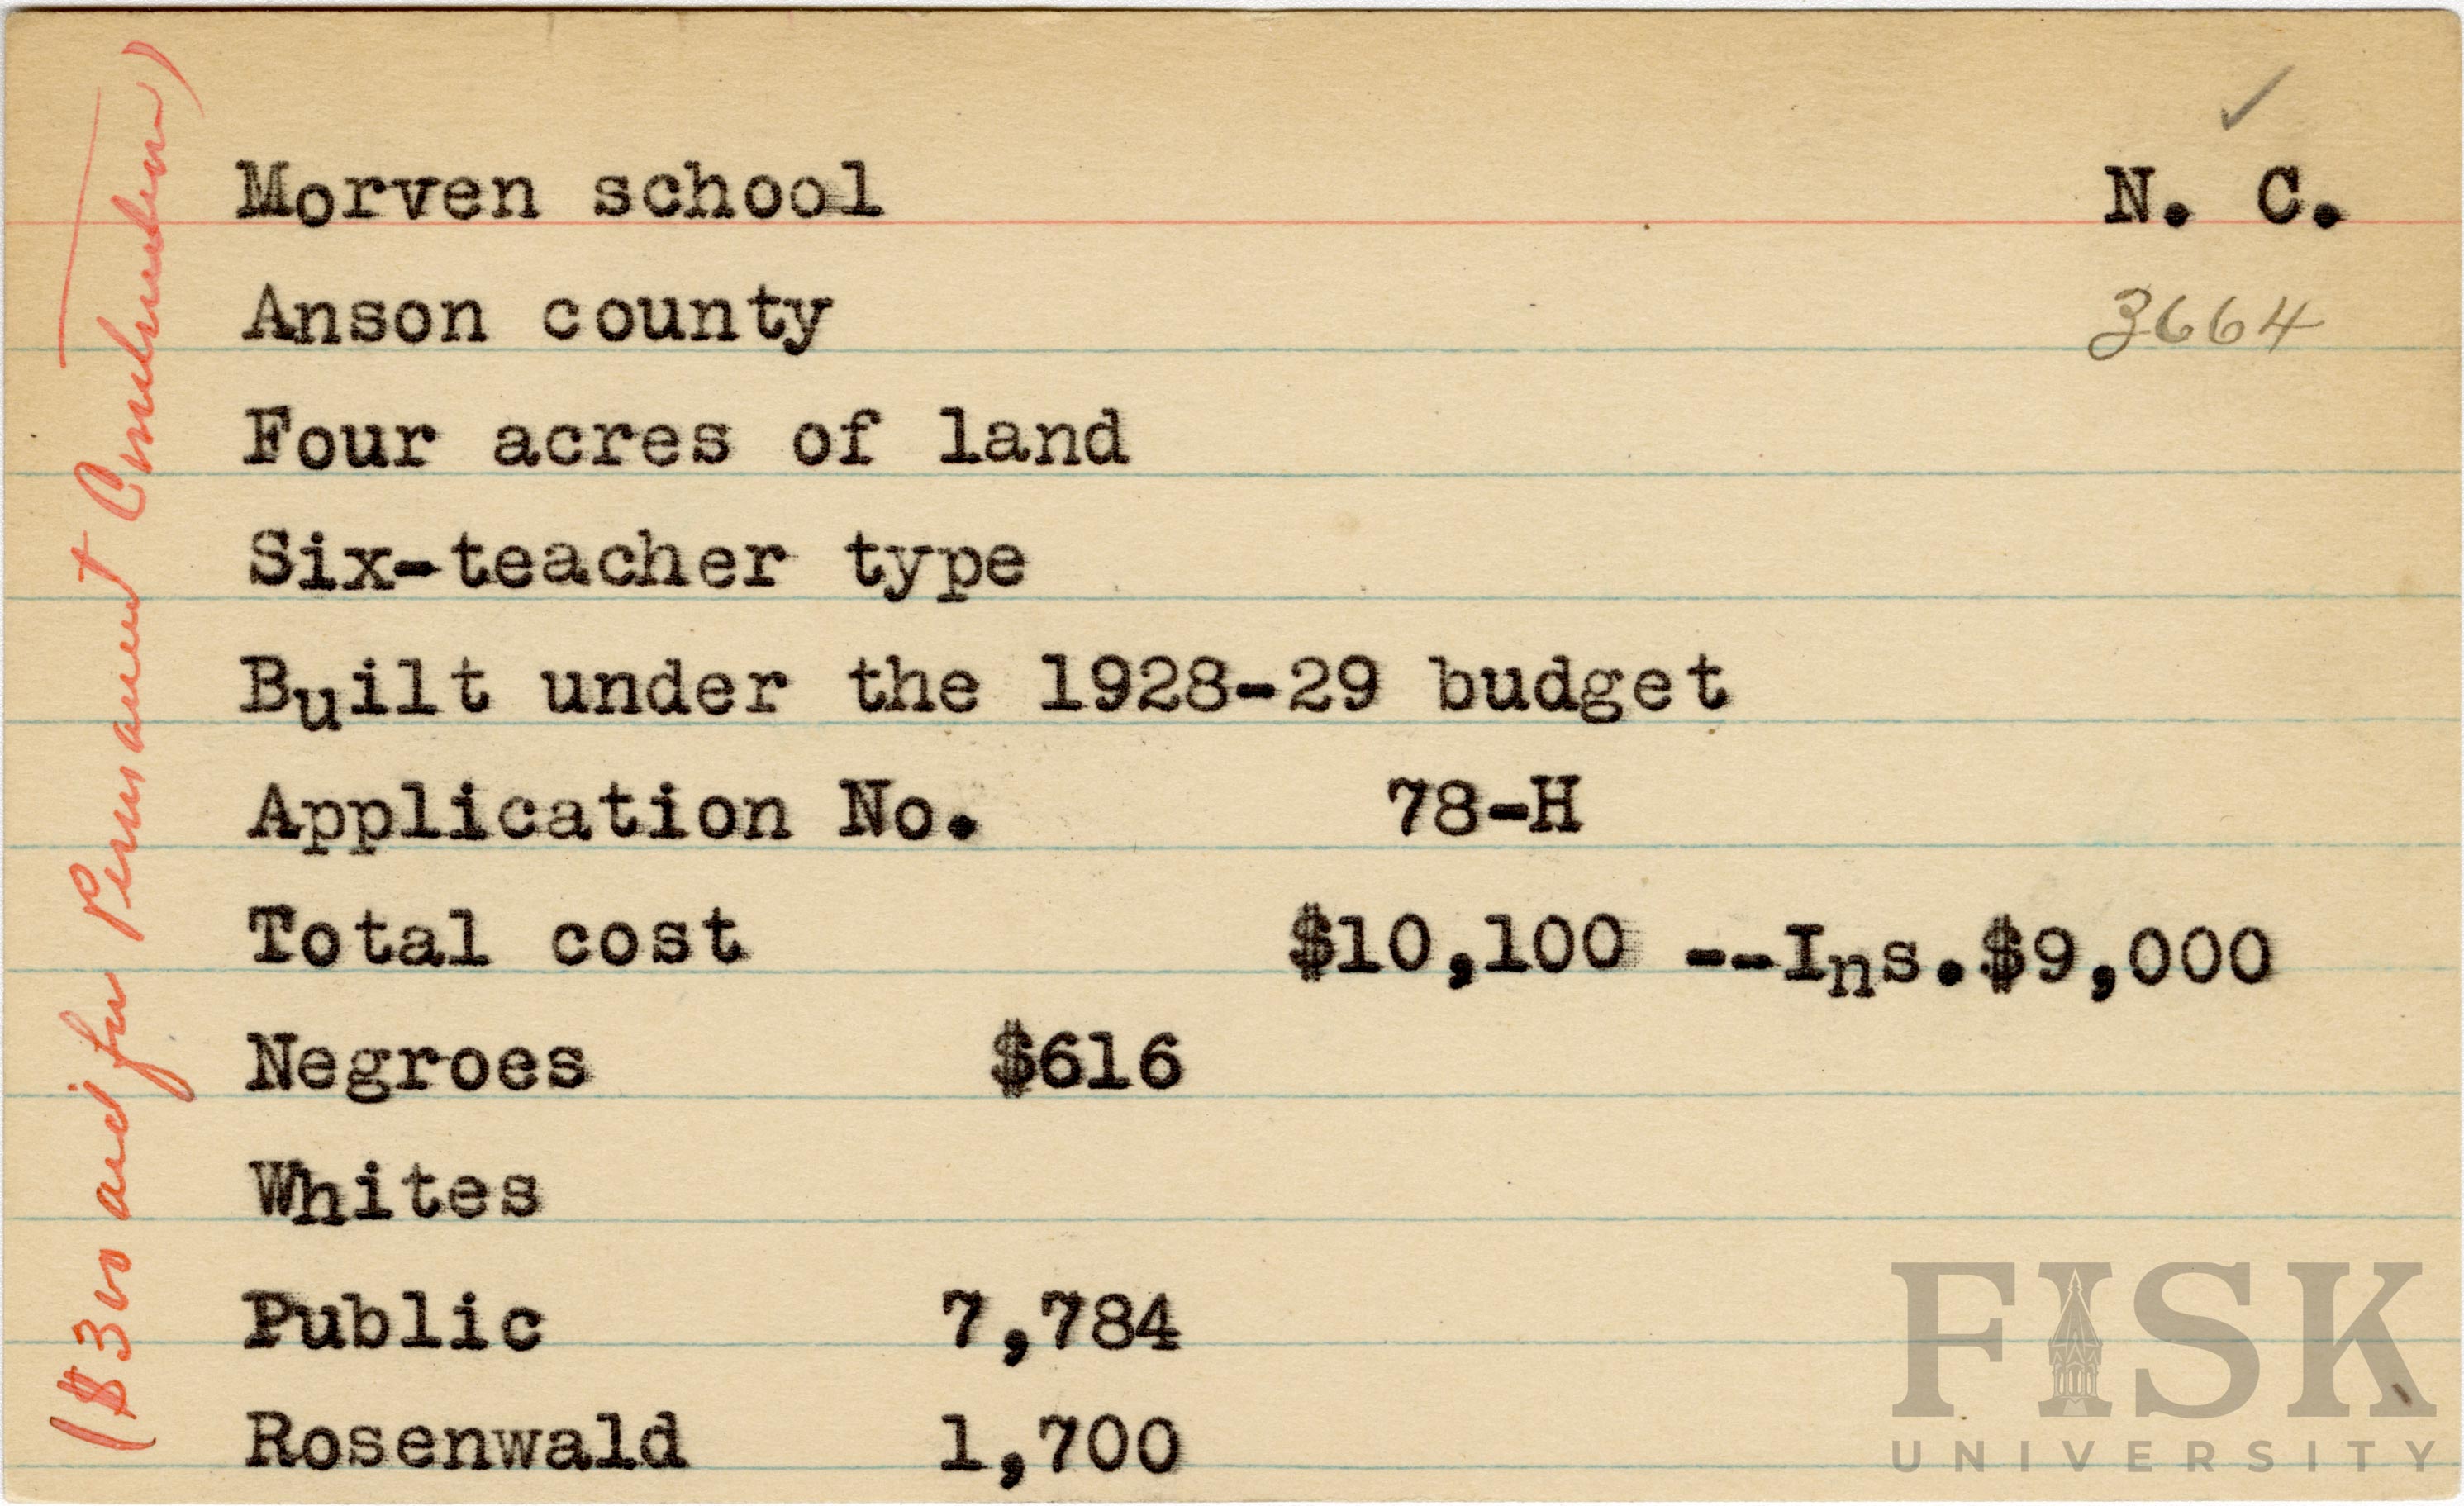 Morven school N. C.
Anson county 3664
Four acres of land
Six-teacher type
Built under the 1928-29 budget
Application No. 78-H
Total cost $10,100 --Ins.$9,000
Negroes $616
Whites
Public 7,784
Rosenwald 1,700
($300 aid for Permanent Construction)
FISK
UNIVERSITY